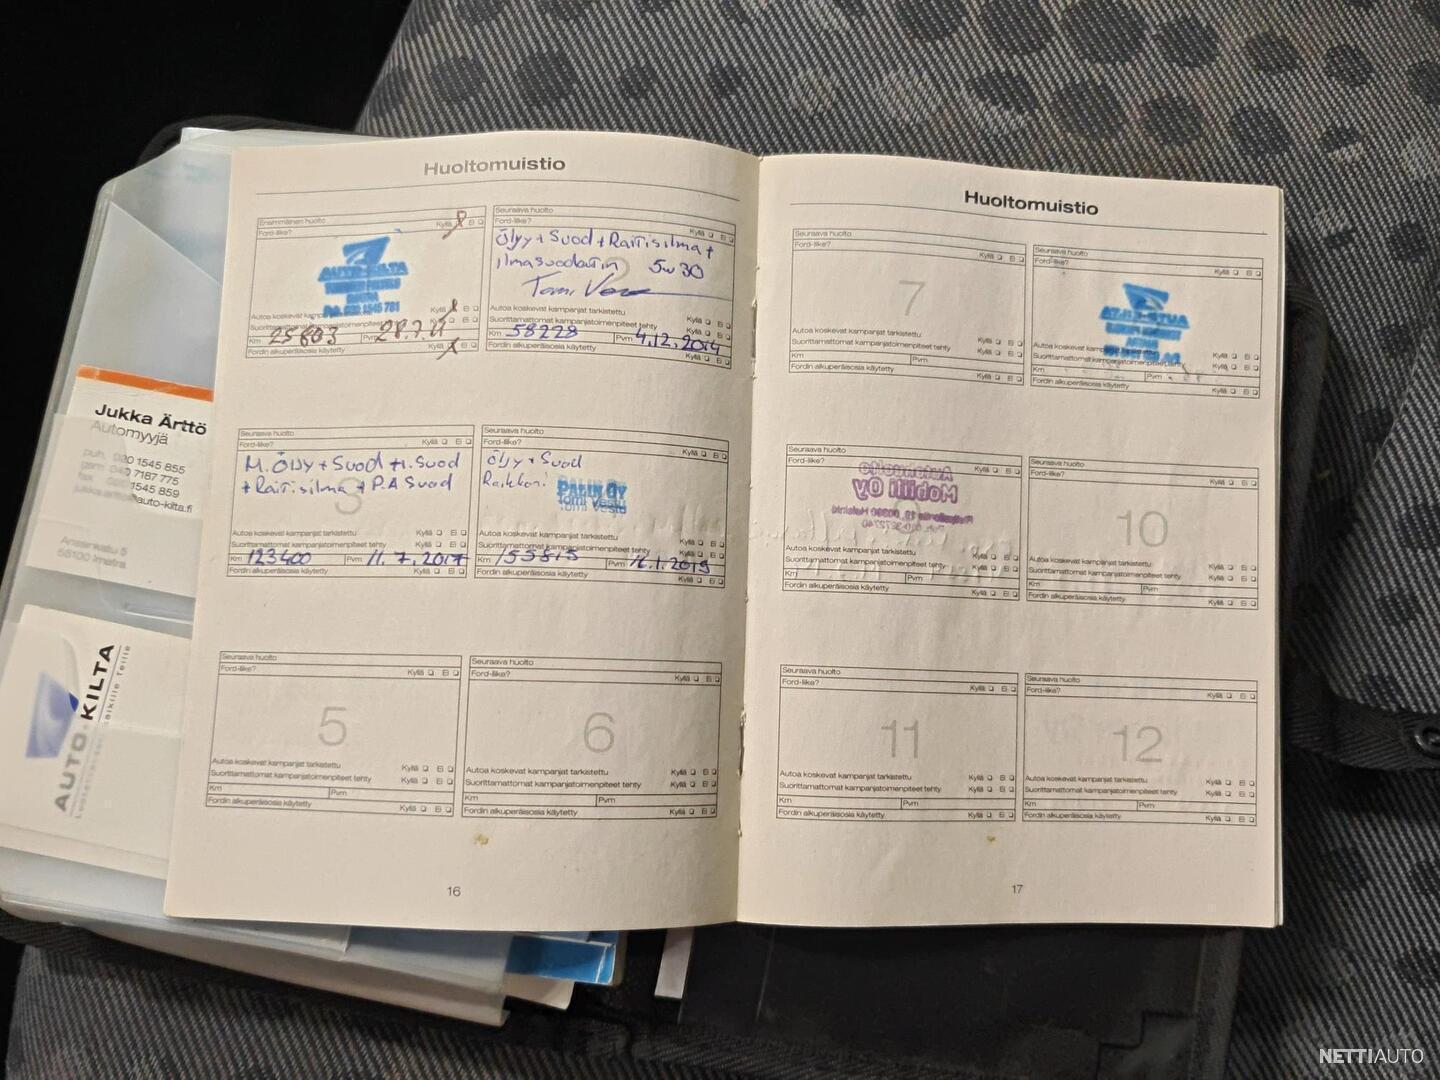 Huoltomuistio
Ensimmäinen huolto
Ford-liike?
Kyllä Ei
AUTO-KILTA
IMATRA
Puh. 020 1545 781
Autoa koskevat kampanjat
Kyllä Ei
Suorittamattomat kampanjatoimenpiteet
Km 25 603 Pvm 28.7.11
Fordin alkuperäisosia käytetty Kyllä
Seuraava huolto
Ford-liike?
Kyllä Ei
Öljy + Suod + Raitisilma +
ilmasuodatin 5w30
Tomi
Autoa koskevat kampanjat tarkistettu Kyllä Ei
Suorittamattomat kampanjatoimenpiteet tehty Kyllä Ei
Km 58228 Pvm 4.12.2014
Fordin alkuperäisosia käytetty Kyllä Ei
Seuraava huolto
Ford-liike? Kyllä Ei
M. Öljy + Suod + I. Suod
+ Raitisilma + P.A Suod
3
Autoa koskevat kampanjat tarkistettu Kyllä Ei
Suorittamattomat kampanjatoimenpiteet tehty Kyllä Ei
Km 123400 Pvm 11.7.2017
Fordin alkuperäisosia käytetty Kyllä Ei
Seuraava huolto
Ford-liike?
Kyllä Ei
Öljy + Suod
PALIN OY
Tomi Vestu
Autoa koskevat kampanjat tarkistettu Kyllä Ei
Suorittamattomat kampanjatoimenpiteet tehty Kyllä Ei
Km 155515 Pvm 16.1.2019
Fordin alkuperäisosia käytetty Kyllä Ei
Seuraava huolto
Ford-liike? Kyllä Ei
5
Autoa koskevat kampanjat tarkistettu Kyllä Ei
Suorittamattomat kampanjatoimenpiteet tehty Kyllä Ei
Km Pvm
Fordin alkuperäisosia käytetty Kyllä Ei
Seuraava huolto
Ford-liike? Kyllä Ei
6
Autoa koskevat kampanjat tarkistettu Kyllä Ei
Suorittamattomat kampanjatoimenpiteet tehty Kyllä Ei
Km Pvm
Fordin alkuperäisosia käytetty Kyllä Ei
16
Huoltomuistio
Seuraava huolto
Ford-liike? Kyllä Ei
7
Autoa koskevat kampanjat tarkistettu Kyllä Ei
Suorittamattomat kampanjatoimenpiteet tehty Kyllä Ei
Km Pvm
Fordin alkuperäisosia käytetty Kyllä Ei
Seuraava huolto
Ford-liike? Kyllä Ei
AUTO-KILTA
Autoa koskevat kampanjat Kyllä Ei
Suorittamattomat kampanjatoimenpiteet Kyllä Ei
Km Pvm
Fordin alkuperäisosia käytetty Kyllä Ei
Seuraava huolto
Ford-liike? Kyllä Ei
Autohuolto
Mobiili Oy
00390 Helsinki
Autoa koskevat kampanjat tarkistettu Kyllä Ei
Suorittamattomat kampanjatoimenpiteet tehty Kyllä Ei
Km Pvm
Fordin alkuperäisosia käytetty Kyllä Ei
Seuraava huolto
Ford-liike? Kyllä Ei
10
Autoa koskevat kampanjat tarkistettu Kyllä Ei
Suorittamattomat kampanjatoimenpiteet tehty Kyllä Ei
Km Pvm
Fordin alkuperäisosia käytetty Kyllä Ei
Seuraava huolto
Ford-liike? Kyllä Ei
11
Autoa koskevat kampanjat tarkistettu Kyllä Ei
Suorittamattomat kampanjatoimenpiteet tehty Kyllä Ei
Km Pvm
Fordin alkuperäisosia käytetty Kyllä Ei
Seuraava huolto
Ford-liike? Kyllä Ei
12
Autoa koskevat kampanjat tarkistettu Kyllä Ei
Suorittamattomat kampanjatoimenpiteet tehty Kyllä Ei
Km Pvm
Fordin alkuperäisosia käytetty Kyllä Ei
17
Jukka Ärttö
Automyyjä
puh. 020 1545 855
gsm 040 7187 775
fax 020 1545 859
auto-kilta.fi
Ansionkatu 5
55100 Imatra
AUTO-KILTA
NETTIAUTO